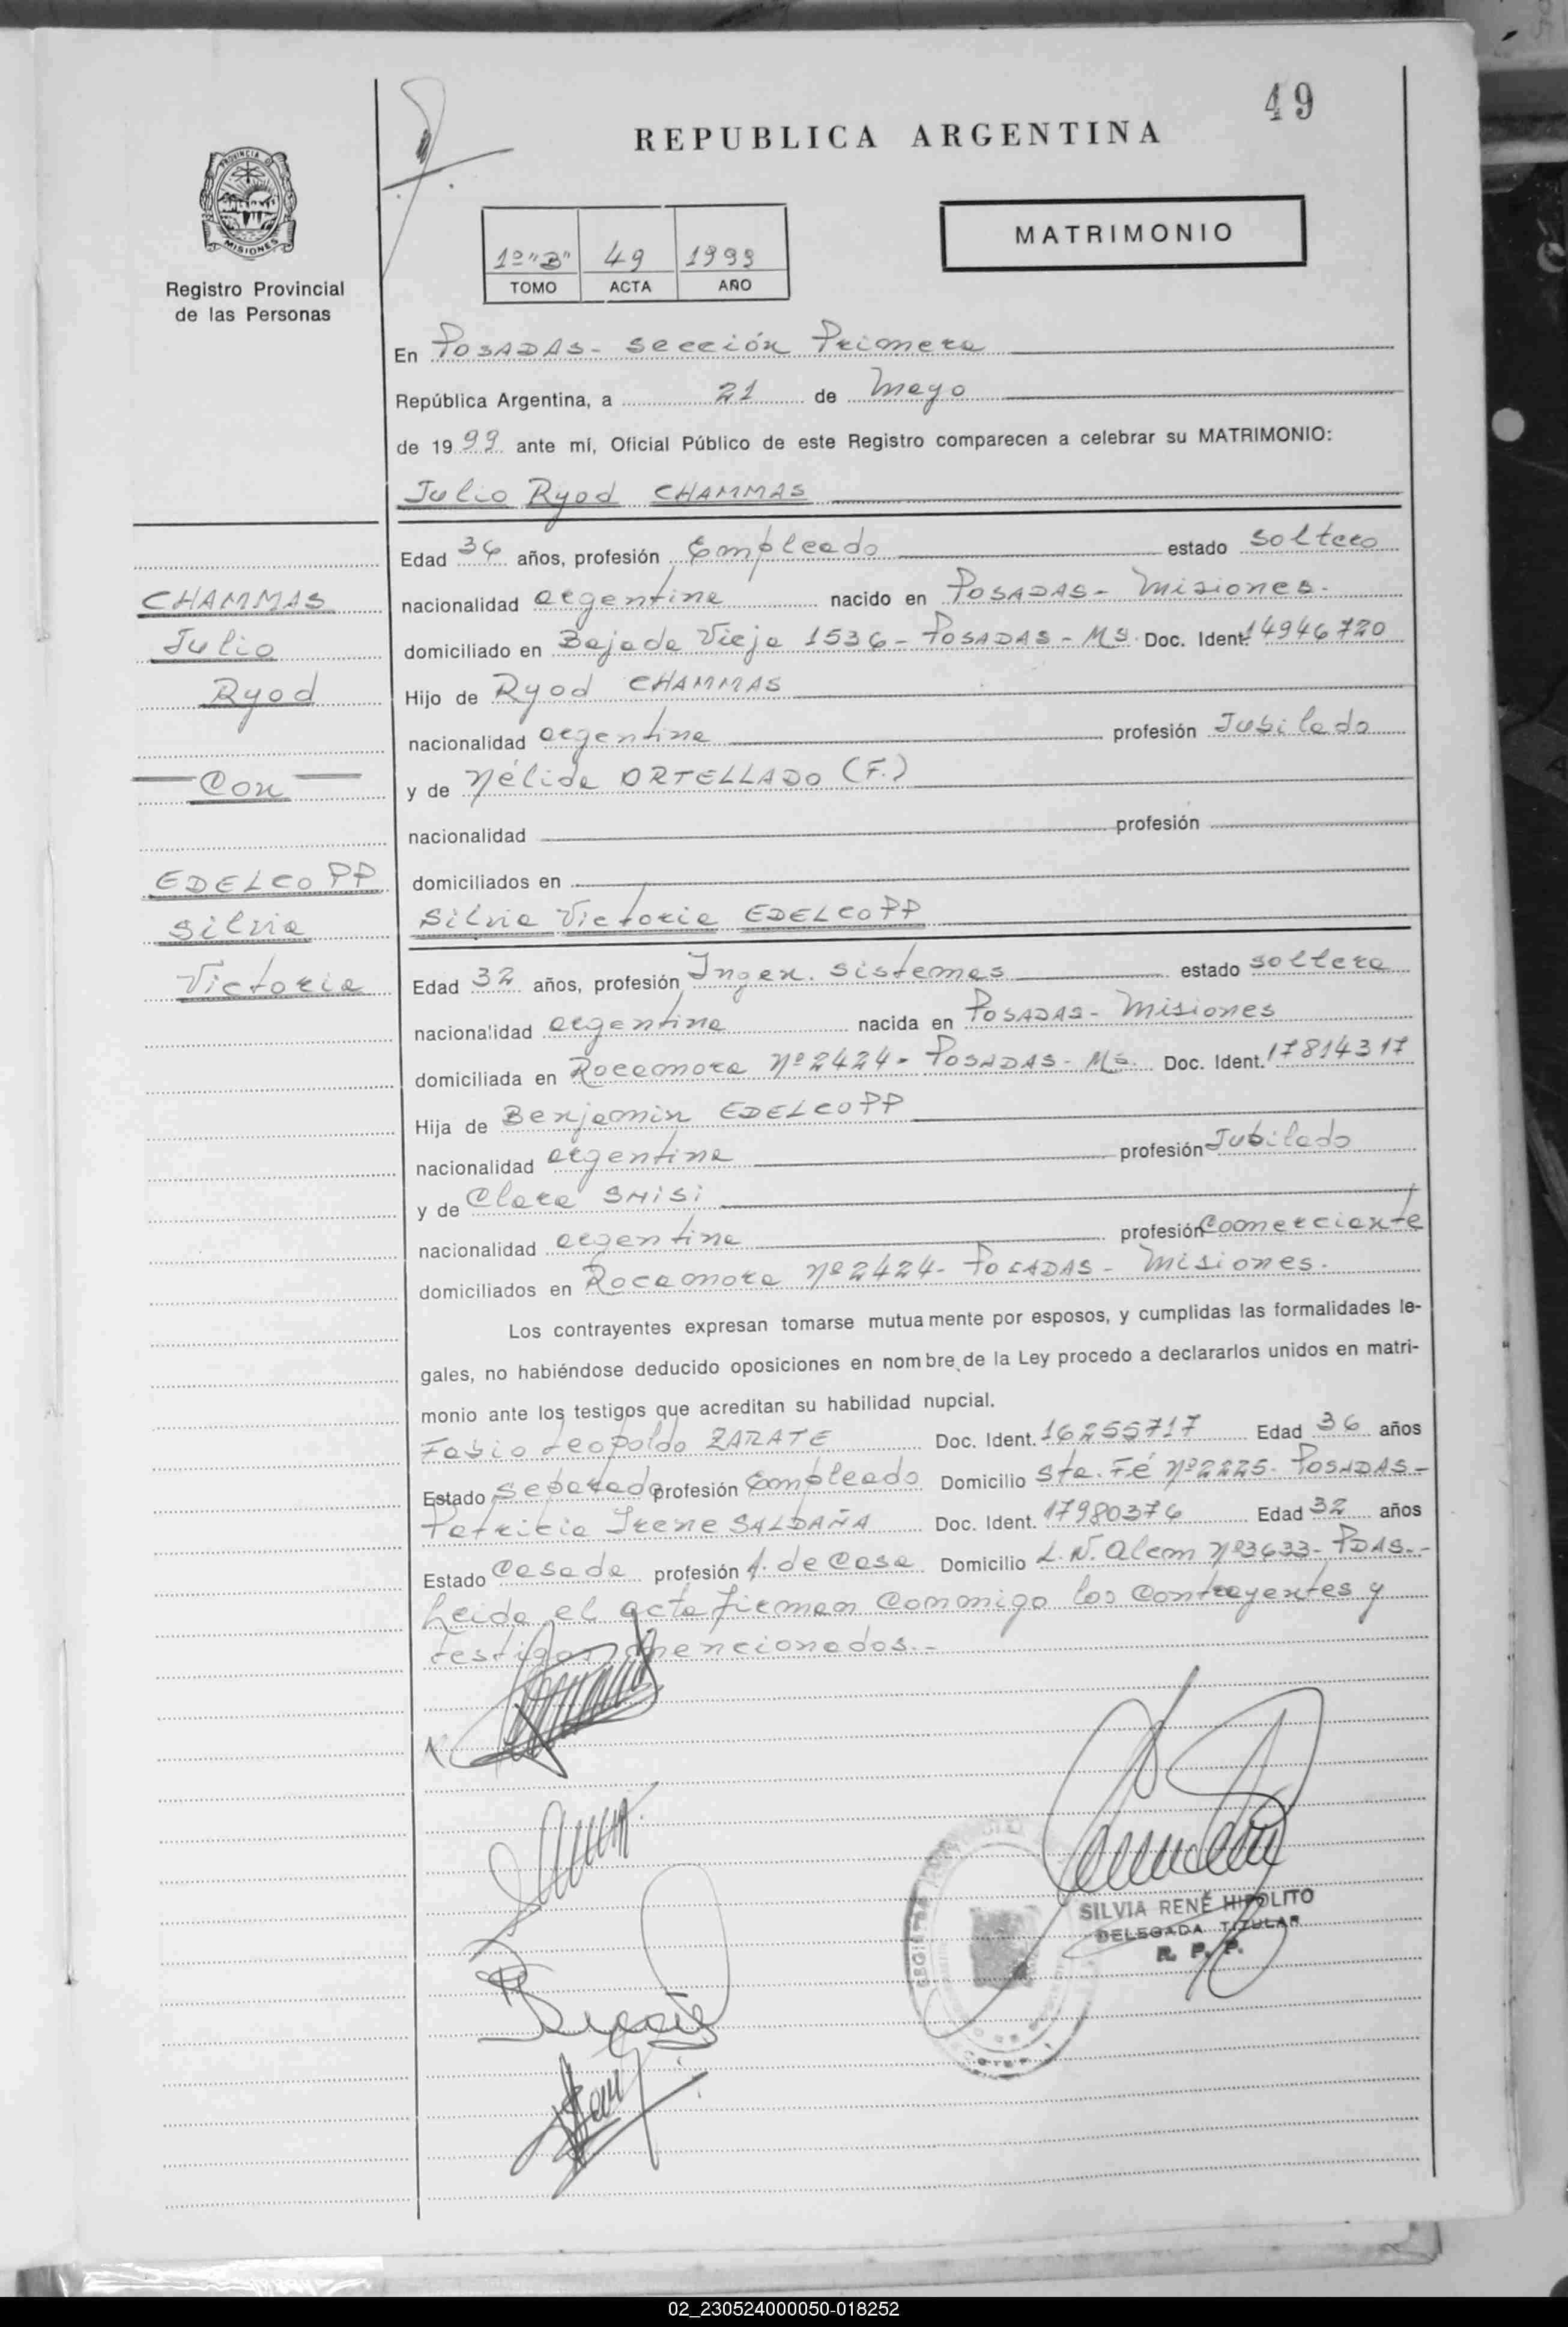 49
REPUBLICA ARGENTINA
PROVINCIA DE
MISIONES
Registro Provincial
de las Personas
1º"B" 49 1999
TOMO ACTA AÑO
MATRIMONIO
En POSADAS- sección Primera
República Argentina, a 21 de Mayo
de 1999 ante mí, Oficial Público de este Registro comparecen a celebrar su MATRIMONIO:
Julio Ryad CHAMMAS
Edad 36 años, profesión Empleado estado soltero
CHAMMAS
nacionalidad argentina nacido en POSADAS- Misiones.
Julio
domiciliado en Bajada Vieja 1536- POSADAS- MS. Doc. Ident. 14946720
Ryad
Hijo de Ryad CHAMMAS
nacionalidad argentina profesión Jubilado
Con
y de Nélida ORTELLADO (F.)
nacionalidad profesión
EDELCOPP
domiciliados en
Silvia
Silvia Victoria EDELCOPP
Victoria
Edad 32 años, profesión Ingen. sistemas estado soltera
nacionalidad argentina nacida en POSADAS- Misiones
domiciliada en Rocamora Nº2424- POSADAS- Ms. Doc. Ident. 17814317
Hija de Benjamin EDELCOPP
nacionalidad argentina profesión Jubilado
y de Clara SMISI
nacionalidad argentina profesión Comerciante
domiciliados en Rocamora Nº2424- POSADAS- Misiones.
Los contrayentes expresan tomarse mutuamente por esposos, y cumplidas las formalidades le-
gales, no habiéndose deducido oposiciones en nombre de la Ley procedo a declararlos unidos en matri-
monio ante los testigos que acreditan su habilidad nupcial.
Fabio Leopoldo ZARATE Doc. Ident. 16255717 Edad 36 años
Estado separado profesión Empleado Domicilio Sta. Fé Nº2225- POSADAS-
Patricia Irene SALDAÑA Doc. Ident. 17980376 Edad 32 años
Estado Casada profesión A. de Casa Domicilio L. N. Alem Nº3633- PDAS.-
Leida el acta firman conmigo los contrayentes y
testigos mencionados.-
SILVIA RENÉ HIPOLITO
DELEGADA TITULAR
R. P. P.
02_230524000050-018252